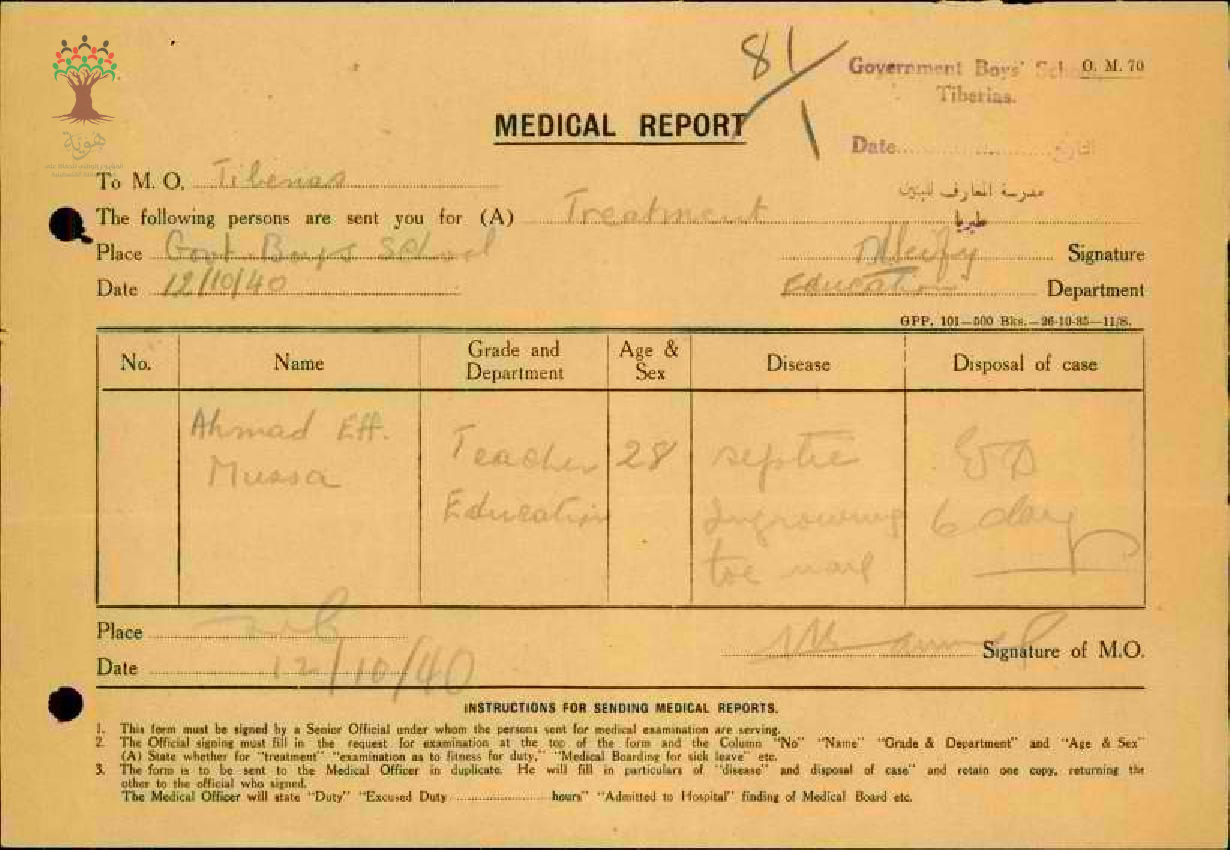 هوية
81/1
Government Boys' School
Tiberias.
O. M. 70
MEDICAL REPORT
Date.......................التاريخ
مدرسة المعارف للبنين
طبريا
To M. O. Tiberias
The following persons are sent you for (A) Treatment
Place Govt. Boys School
Signature
Date 12/10/40
Education Department
GPP. 101—500 Bks.—26-10-35—11/S.
No. Name Grade and Department Age & Sex Disease Disposal of case
Ahmad Eff. Teacher 28 septic
Mussa Education Ingrowing 6 days
toe nail
Place
Signature of M.O.
Date 12/10/40
INSTRUCTIONS FOR SENDING MEDICAL REPORTS.
1. This form must be signed by a Senior Official under whom the persons sent for medical examination are serving.
2. The Official signing must fill in the request for examination at the top of the form and the Column "No" "Name" "Grade & Department" and "Age & Sex"
(A) State whether for "treatment" "examination as to fitness for duty," "Medical Boarding for sick leave" etc.
3. The form is to be sent to the Medical Officer in duplicate. He will fill in particulars of "disease" and disposal of case" and retain one copy, returning the
other to the official who signed.
The Medical Officer will state "Duty" "Excused Duty ........................ hours" "Admitted to Hospital" finding of Medical Board etc.